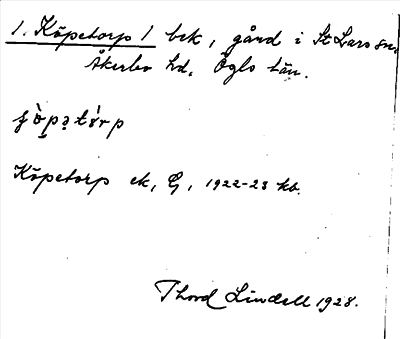 1. Köpetorp 1 bsk, gård i St Lars sn.
Åkerbo hd. Ögls län.
Köpetorp ek, G, 1922-23 kb.
Thord Lindell 1928.